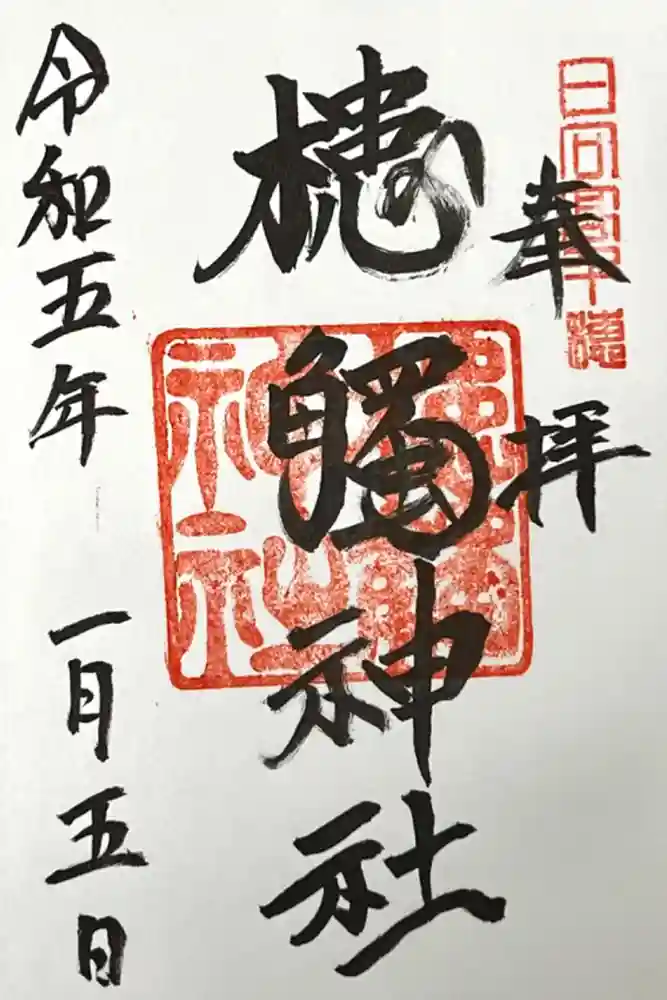 日向高千穂
奉拝
槵觸神社
令和五年 一月五日